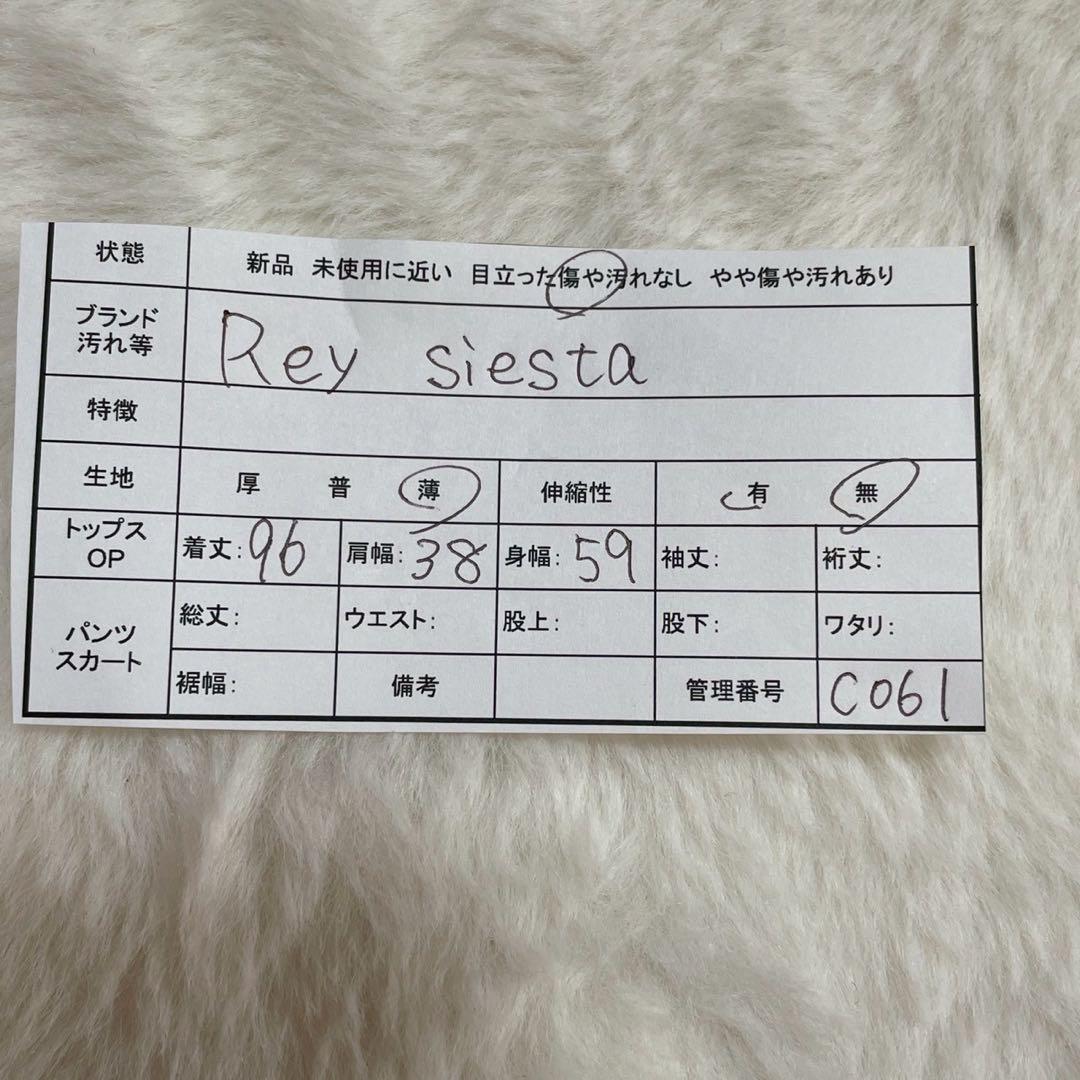 状態 新品 未使用に近い 目立った傷や汚れなし やや傷や汚れあり
ブランド
汚れ等
Rey siesta
特徴
生地 厚 普 薄 伸縮性 有 無
トップス
OP
着丈:96 肩幅:38 身幅:59 袖丈: 裄丈:
パンツ
スカート
総丈: ウエスト: 股上: 股下: ワタリ:
裾幅: 備考 管理番号 C061